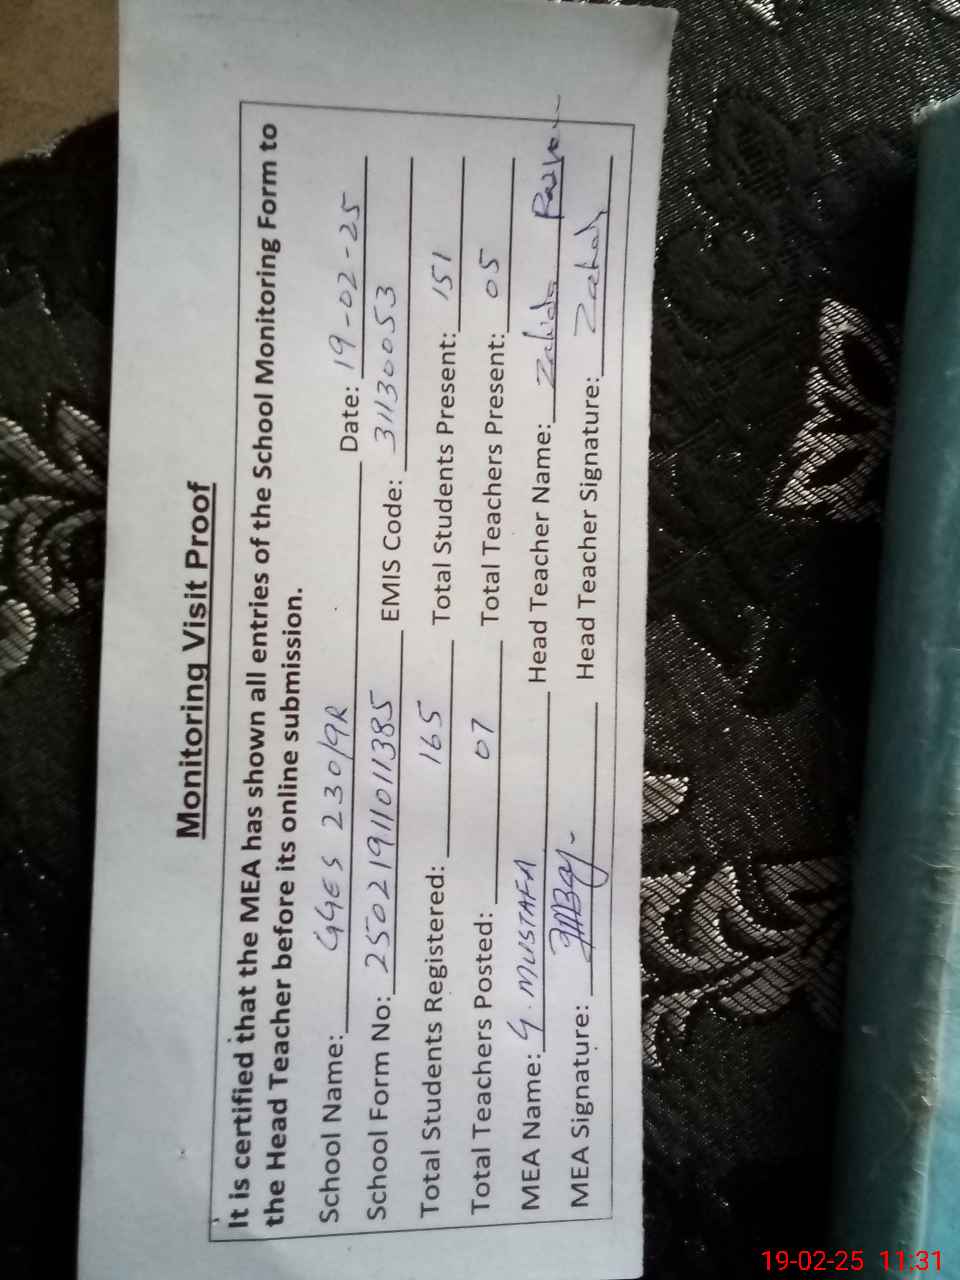 Monitoring Visit Proof
It is certified that the MEA has shown all entries of the School Monitoring Form to
the Head Teacher before its online submission.
School Name: GGES 230/9R Date: 19-02-25
School Form No: 2502191101138​5 EMIS Code: 31130053
Total Students Registered: 165 Total Students Present: 151
Total Teachers Posted: 07 Total Teachers Present: 05
MEA Name: G. MUSTAFA Head Teacher Name: Zahida
MEA Signature: Head Teacher Signature:
19-02-25 11:31